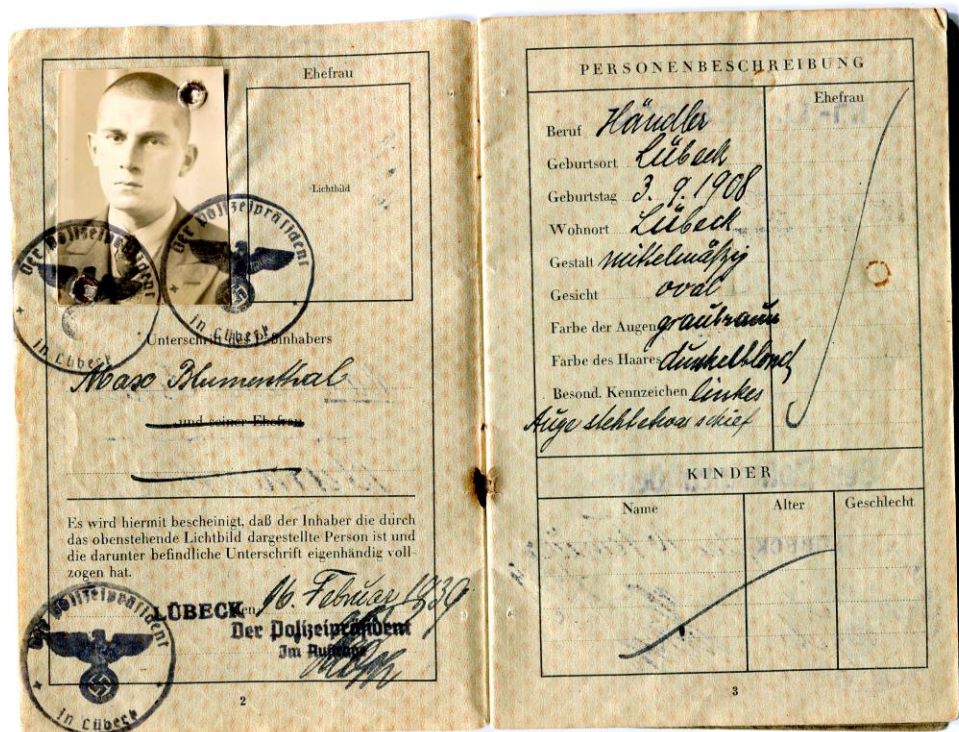 Ehefrau
Lichtbild
Der Polizeipräsident
in Lübeck
Der Polizeipräsident
in Lübeck
Unterschrift des Paßinhabers
Max Blumenthal
und seiner Ehefrau
Es wird hiermit bescheinigt, daß der Inhaber die durch
das obenstehende Lichtbild dargestellte Person ist und
die darunter befindliche Unterschrift eigenhändig voll-
zogen hat.
LÜBECK, den 16. Februar 1939
Der Polizeipräsident
Im Auftrage
Der Polizeipräsident
in Lübeck
2
PERSONENBESCHREIBUNG
Ehefrau
Beruf Händler
Geburtsort Lübeck
Geburtstag 3. 9. 1908
Wohnort Lübeck
Gestalt mittelmäßig
Gesicht oval
Farbe der Augen graubraun
Farbe des Haares dunkelblond
Besond. Kennzeichen linkes
Auge steht etwas schief
KINDER
Name Alter Geschlecht
3